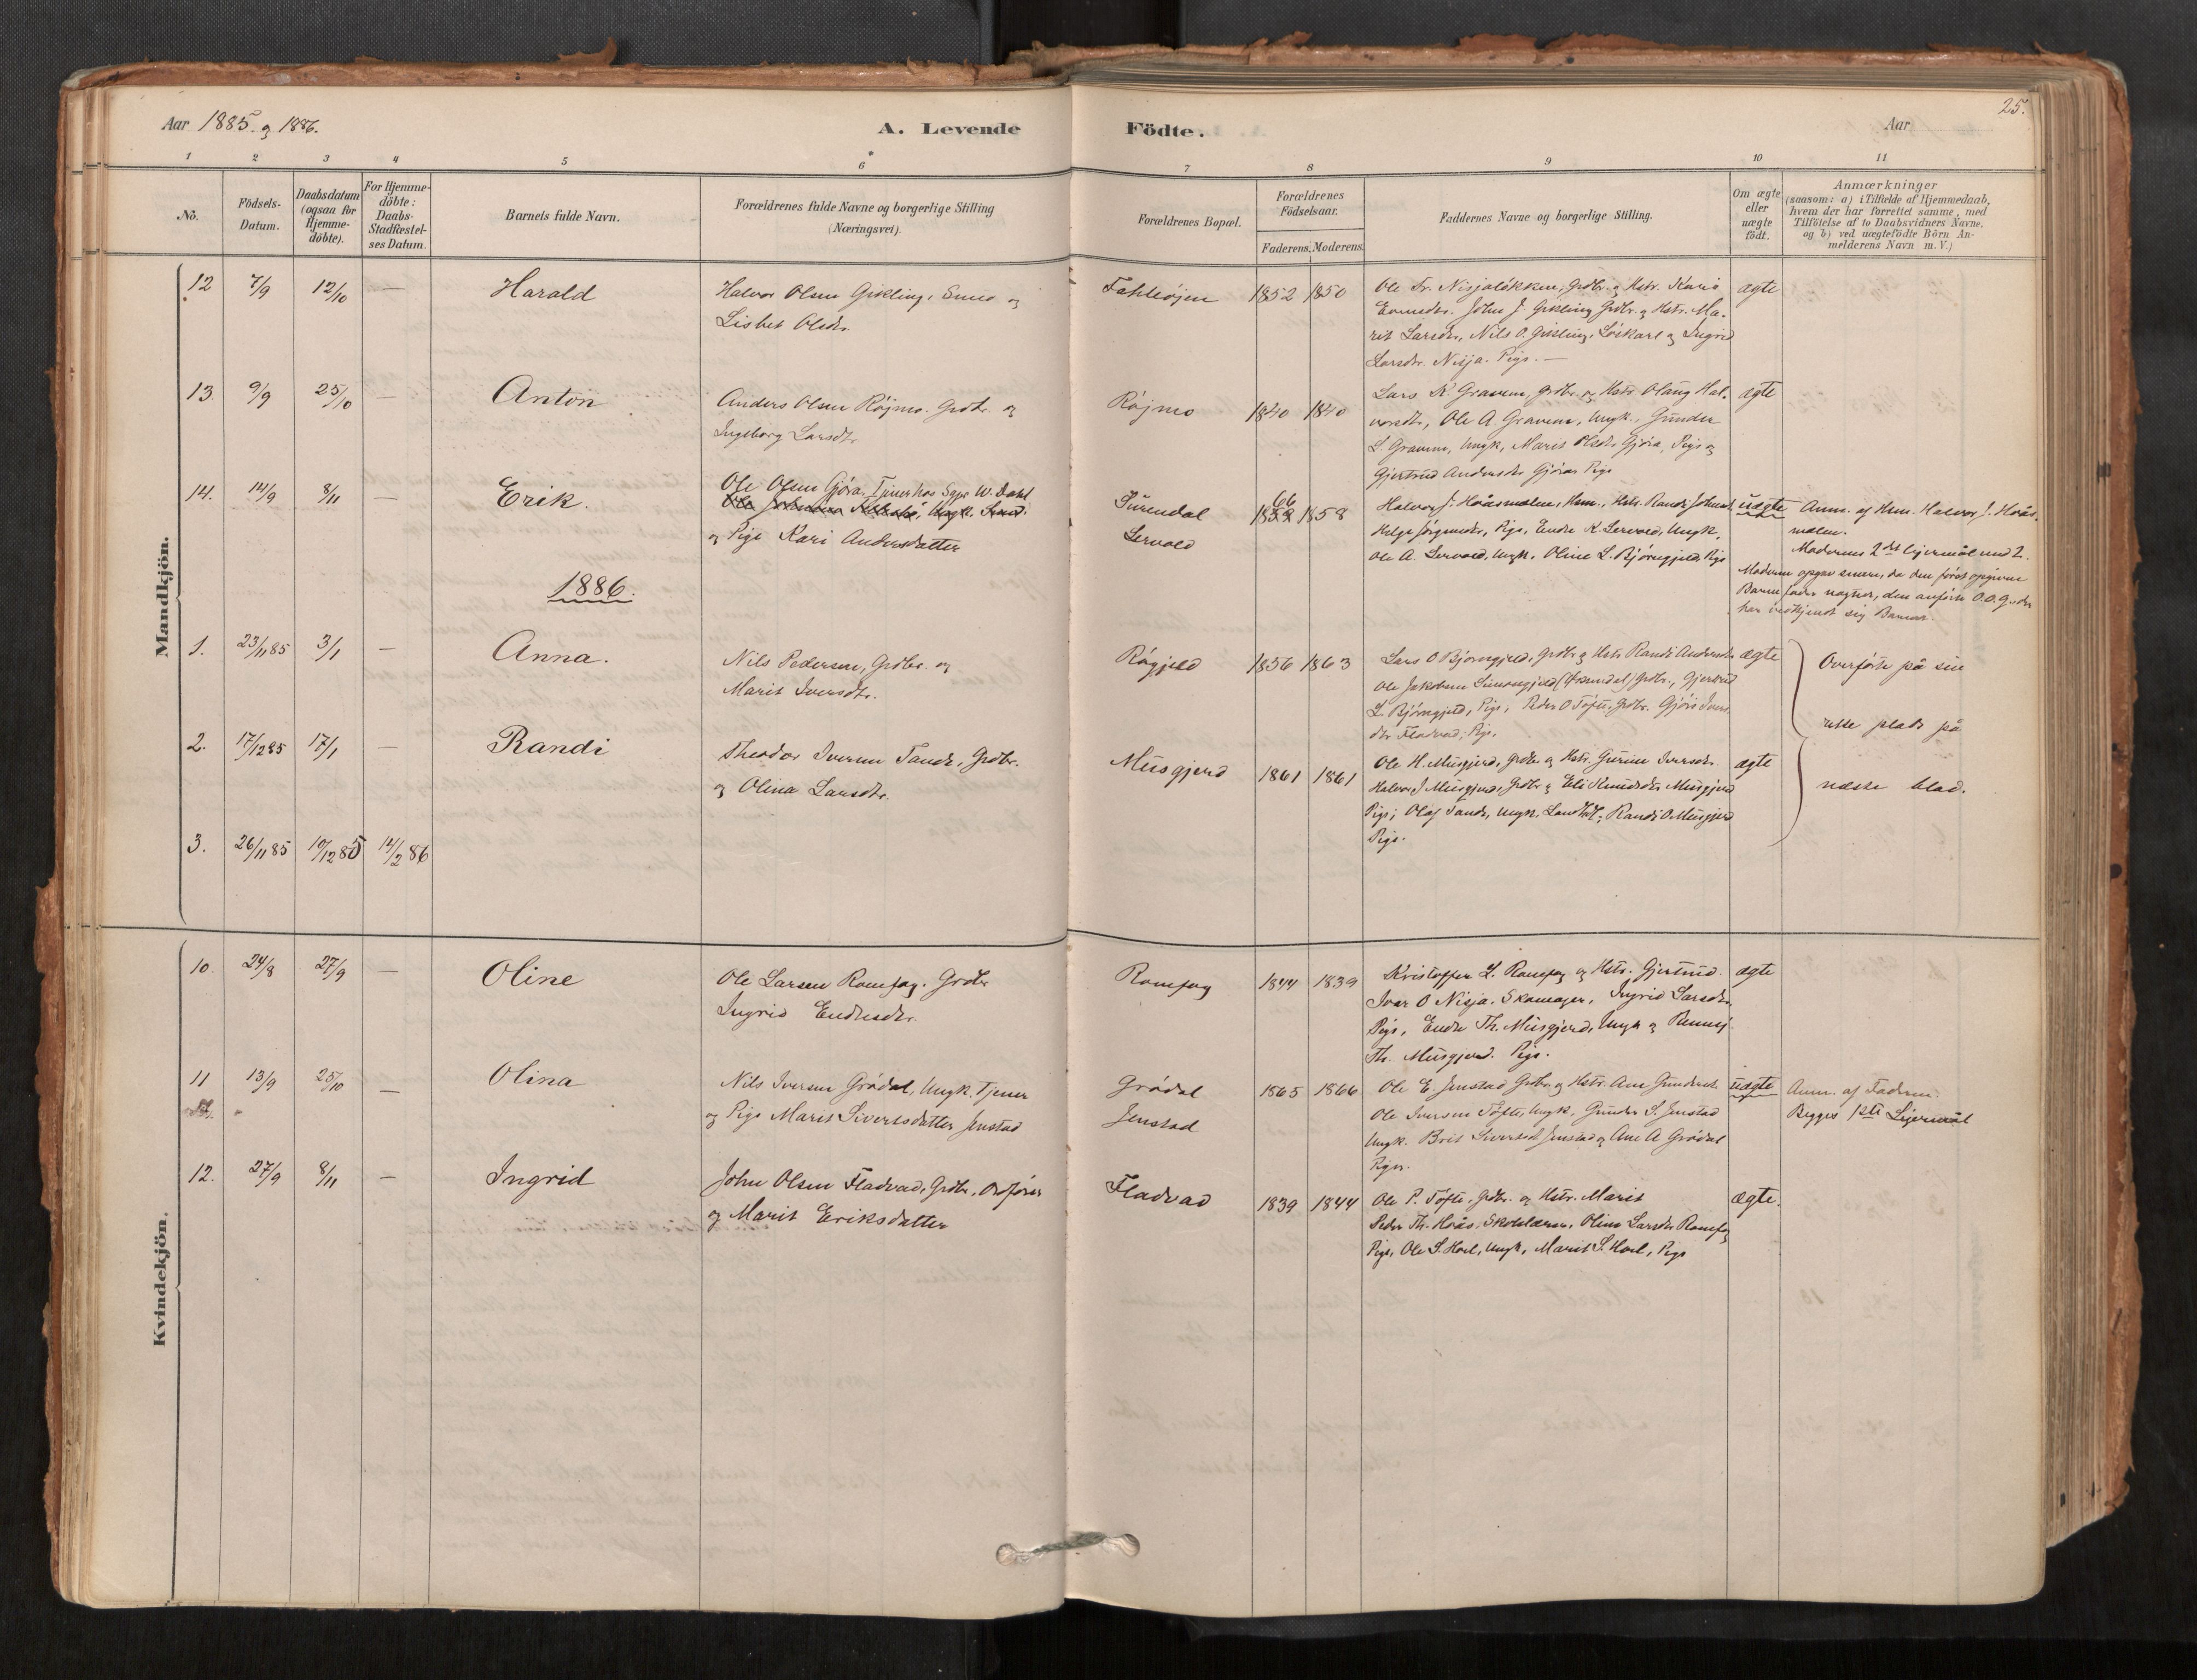 Aar 1885. og 1886.
A. Levende
Födte.
Aar
25.
1
2
3
4
5
6
7
8
9
10
11
No.
Födsels-
Datum.
Daabsdatum
(ogsaa for
Hjemme-
döbte).
For Hjemme-
döbte:
Daabs-
Stadfæstel-
ses Datum.
Barnets fulde Navn.
Forældrenes fulde Navne og borgerlige Stilling
(Næringsvei).
Forældrenes Bopæl.
Forældrenes
Födselsaar.
Faderens. Moderens.
Faddernes Navne og borgerlige Stilling.
Om ægte
eller
uægte
födt.
Anmærkninger
(saasom: a) i Tilfælde af Hjemmedaab,
hvem der har forrettet samme, med
Tilföielse af to Daabsvidners Navne.
og b) ved uægtefödte Börn An-
melderens Navn m. V.)
Mandkjön.
12 7/9 12/10 — Harald
Halvor Olsen Gikling, Smed og
Lisbet Olsdr.
1852 1850
Ole Tr. Nisjalökken, Grdbr. og Kstr. Kari
John J. Gikling Grdbr. og Kstr. Ma-
rit Larsdr., Nils O. Gikling, Löskarl og Ingrid
Larsdr. Nisja. Pige. —
ægte
13 9/9 25/10 — Anton
Anders Olsen Röjmo. Grdbr. og
Ingeborg Larsdtr.
Röjmo 1840 1840
Lars K. Gravem, Grdbr. og Kstr. Olaug Hal-
vorsdt., Ole A. Gravem, Ungk., Gunder
L. Gravem, Ungk., Marit Olsdr. Gjöra, Pige og
Gjertrud Andersdr. Gjöra Pige
ægte
14. 14/9 8/11 — Erik.
Ole Olsen Gjöra. Tjener hos W. Dahl
og Pige Kari Andersdatter
Surendal
Lervold
66
1858
Halvor J. Hoåsmælen, Hsm., Kstr. Randi Johnsd.
Helge Jörgensdr., Pige, Endre K. Lervold, Ungk.
Ole A. Lervold, Ungk. Oline L. Björngjeld, Pige
uægte
Anm. af Hsm. Halvor J. Hoås-
mælen.
Moderens 2det Leiermål med 2.
Moderen opgav senere, da den först opgivne
Barnefader nægter, den anförte O. O. G. der
har vedkjendt sig Barnet.
1886.
1. 23/11 85 3/1 — Anna.
Nils Pedersen, Grdbr. og
Marit Iversdtr.
Rögjeld 1856 1863
Lars O Björngjeld, Grdbr. og Kstr. Randi Andersdr.
Ole Jakobsen Grdbr., Gjertrud
L. Björngjeld, Pige, Peder O Tofte, Grdbr. Gjöri Ivers-
dtr Fladvad, Pige.
ægte
Overförte på sin
rette plads på
næste blad.
2. 17/12 85 17/1 — Randi
Theodor Iversen Tande, Grdbr.
og Olina Larsdtr.
Musgjerd 1861 1861
Ole H. Musgjerd, Grdbr. og Kstr. Gurine Iversdr.
Halvor J Musgjerd, Grdbr. og Eli Knudsdr. Musgjerd
Pige; Olaf Tande, Ungk., Randi O Musgjerd
Pige.
ægte
3. 26/11 85 10/12 85 14/2 86
Kvindekjön.
10. 24/8 27/9 — Oline
Ole Larsen Romfog. Grdbr
Ingrid Endresdr.
Romfog 1844 1839
Kristoffer L. Romfog og Kstr. Gjertrud.
Ivar O Nisja. Skomager, Ingrid Larsdr.
Pige, Endre Th. Musgjerd, Ungk og
Th. Musgjerd. Pige.
ægte
11 13/9 25/10 — Olina
Nils Iversen Grödal, Ungk. Tjener
og Pige Marit Sivertsdatter Jenstad
Grödal
Jenstad
1865 1866
Ole E. Jenstad Grdbr. og Kstr. Ane Gundersdt.
Ole Iversen Tofte, Ungk., Gunder S. Jenstad
Ungk. Brit Sivertsdt Jenstad og Ane A Grödal
Piger.
uægte
Anm. af Faderen.
Begges 1ste Lejermål
12. 27/9 8/11 — Ingrid
John Olsen Fladvad, Grdbr., Ordförer
og Marit Eriksdatter
Fladvad 1839 1844
Ole P. Tofte, Grdbr. og Kstr. Marit
Peder Th. Hoås, Skolelærer, Oline Larsdr. Romfog
Pige, Ole S. Hoel, Ungk, Marit S. Hoel, Pige
ægte.